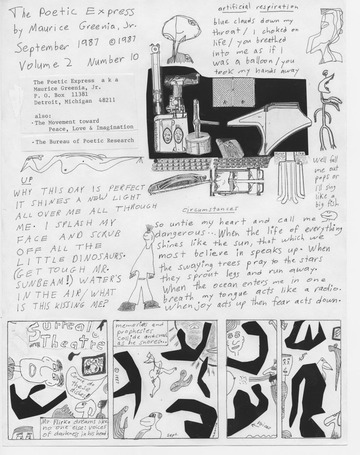 The Poetic Express
by Maurice Greenia, Jr.
September 1987 ©1987
Volume 2 Number 10
The Poetic Express a k a
Maurice Greenia, Jr.
P. O. Box 11381
Detroit, Michigan 48211
also:
-The Movement toward
Peace, Love & Imagination
-The Bureau of Poetic Research
artificial respiration
blue clouds down my
throat/ I choked on
life/ you breathed
into me as if I
was a balloon/ you
took my hands away
UP
WHY THIS DAY IS PERFECT
IT SHINES A NEW LIGHT
ALL OVER ME ALL THROUGH
ME. I SPLASH MY
FACE AND SCRUB
OFF ALL THE
LITTLE DINOSAURS.
(GET TOUGH MR.
SUNBEAM!) WATER'S
IN THE AIR/ WHAT
IS THIS KISSING ME?
Circumstances
So untie my heart and call me
dangerous... When the life of everything
shines like the sun, that which we
most believe in speaks up. When
the swaying trees pray to the stars
they sprout legs and run away.
When the ocean enters me in one
breath my tongue acts like a radio.
When joy acts up then fear acts down.
Surreal
Theatre
memories and
prophecies
as he
Mr.
no one else: voices
of darkness in his head